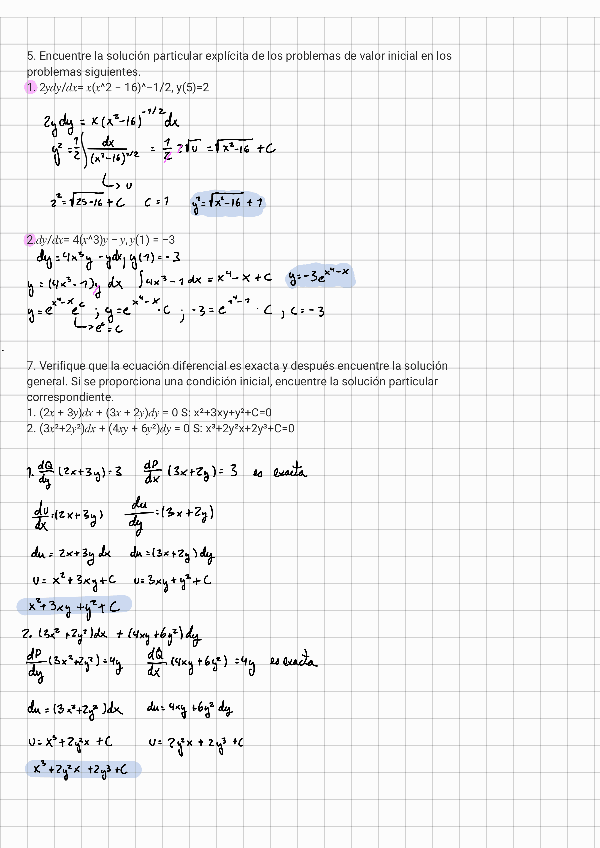 5. Encuentre la solución particular explícita de los problemas de valor inicial en los
problemas siguientes.
1. 2𝑦𝑑𝑦/𝑑𝑥= 𝑥(𝑥^2 − 16)^−1/2, y(5)=2
2y dy = x(x²-16)^-1/2 dx
y² = 1/2 ∫ dx/(x²-16)^1/2 = 1/2 2√u = √x²-16 + C
↳ u
2² = √25-16 + C   C = 1   y² = √x²-16 + 1
2.𝑑𝑦/𝑑𝑥= 4(𝑥^3)𝑦 − 𝑦, 𝑦(1) = −3
dy = 4x³y - ydx, y(1) = -3
y = (4x³-1)y dx   ∫4x³-1 dx = x⁴-x + C   y = -3e^x⁴-x
y = e^x⁴-x e^c ; y = e^x⁴-x · C ; -3 = e^x⁴-1 · C ; C = -3
↳ e^c = C
7. Verifique que la ecuación diferencial es exacta y después encuentre la solución
general. Si se proporciona una condición inicial, encuentre la solución particular
correspondiente.
1. (2𝑥 + 3𝑦)𝑑𝑥 + (3𝑥 + 2𝑦)𝑑𝑦 = 0 S: x²+3xy+y²+C=0
2. (3𝑥²+2𝑦²)𝑑𝑥 + (4𝑥𝑦 + 6𝑦²)𝑑𝑦 = 0 S: x³+2y²x+2y³+C=0
1. dQ/dy (2x+3y) = 3   dP/dx (3x+2y) = 3   es exacta
du/dx = (2x+3y)   du/dy = (3x+2y)
du = 2x+3y dx   du = (3x+2y) dy
u = x²+3xy+C   u = 3xy+y²+C
x²+3xy+y²+C
2. (3x²+2y²)dx + (4xy+6y²)dy
dP/dy (3x²+2y²) = 4y   dQ/dx (4xy+6y²) = 4y   es exacta
du = (3x²+2y²)dx   du = 4xy+6y² dy
u = x³+2y²x+C   u = 2y²x+2y³+C
x³+2y²x+2y³+C